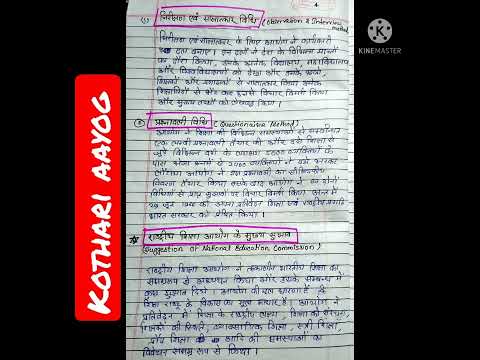 KOTHARI AAYOG
KINEMASTER
4
(1) निरीक्षण एवं साक्षात्कार विधि (Observation & Interview
method)
निरीक्षण एवं साक्षात्कार के लिए आयोग ने कार्यकारी
दल बनाए। इन दलों ने देश के विभिन्न भागों
का दौरा किया, उनके अनेक विद्यालय, महाविद्यालय
और विश्वविद्यालयों को देखा और उनके
शिक्षकों और से साक्षात्कार किया अनेक
शिक्षाविदों से भेंट कर उनसे विचार विमर्श किया
और मुख्य तथ्यों को लेखबद्ध किया।
प्रश्नावली विधि (Questionaire Method)
आयोग ने शिक्षा की विभिन्न समस्याओं से सम्बन्धित
एक लम्बी प्रश्नावली तैयार की और उसे शिक्षा से
जुड़े विभिन्न वर्ग के लगभग 5000 व्यक्तियों के
पास भेजा इनमें से 2400 व्यक्तियों ने उसे भरकर
आयोग ने इस प्रश्नावली का सांख्यिकीय
विवरण तैयार किया इसके बाद आयोग ने इन दोनों
विधियों से प्राप्त सुझावों पर विचार विमर्श किया अन्त में
29 जून 1966 को अपना प्रतिवेदन शिक्षा एवं राष्ट्रीय प्रगति
भारत सरकार को प्रेषित किया।
राष्ट्रीय शिक्षा आयोग के मुख्य सुझाव
(Suggestion of National Education Commission)
राष्ट्रीय शिक्षा आयोग ने तत्कालीन भारतीय शिक्षा का
समग्ररूप से अध्ययन किया और उसके सम्बन्ध में
कुछ सुझाव दिये। आयोग की स्पष्ट धारणा है कि
शिक्षा राष्ट्र के विकास का मूल आधार है। आयोग ने
प्रतिवेदन में शिक्षा के राष्ट्रीय लक्ष्य, शिक्षा की संरचना,
शिक्षकों की स्थिति, व्यावसायिक शिक्षा, स्त्री शिक्षा,
प्रौढ़ शिक्षा आदि की समस्याओं का
विवेचन समग्र रूप से किया।